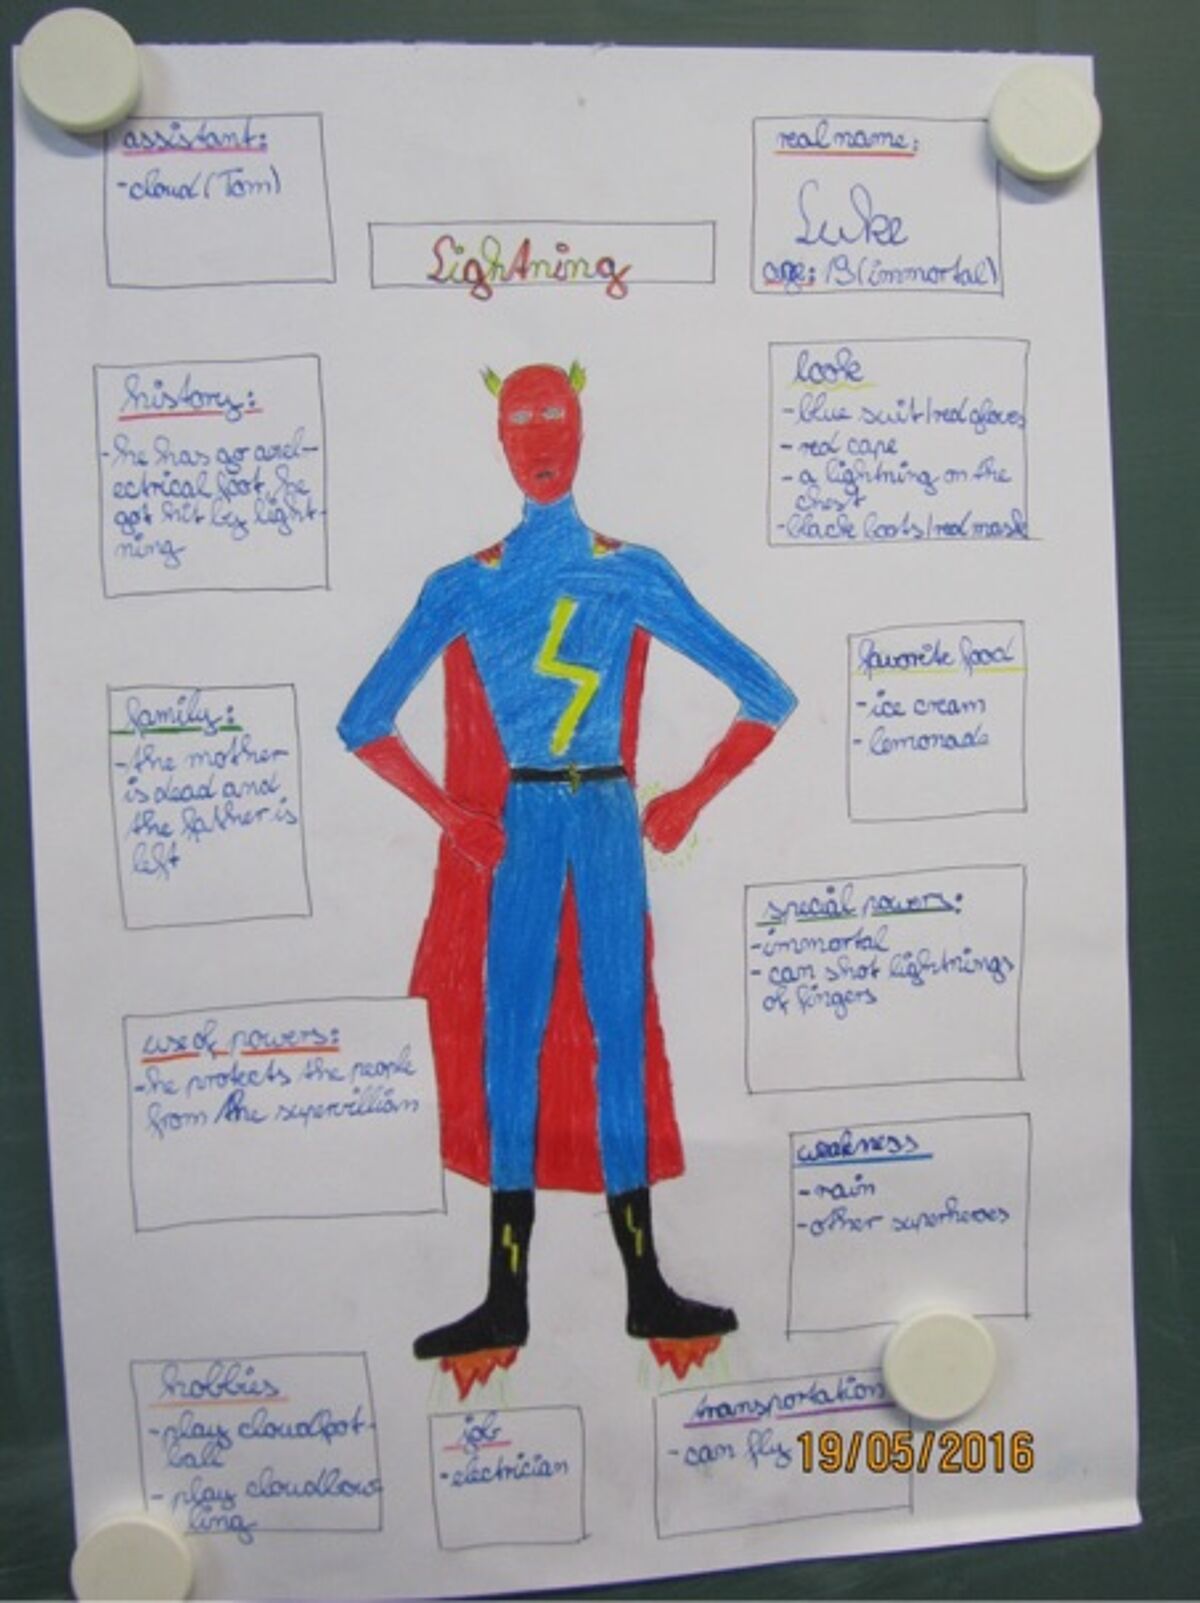 assistant:
-cloud (Tom)
real name:
Luke
age: 19 (immortal)
Lightning
history:
-he has go an el-
ectrical foot, he
got hit by light-
ning
look
-blue suit/red gloves
-red cape
-a lightning on the
chest
-black boots/red mask
family:
-the mother
is dead and
the father is
left
favorite food
-ice cream
-lemonade
special powers:
-immortal
-can shot lightnings
of fingers
use of powers:
-he protects the people
from the supervillian
weakness
-rain
-other superheroes
hobbies
-play cloudfoot-
ball
-play cloudbow-
ling
job
-electrician
transportation
-can fly
19/05/2016